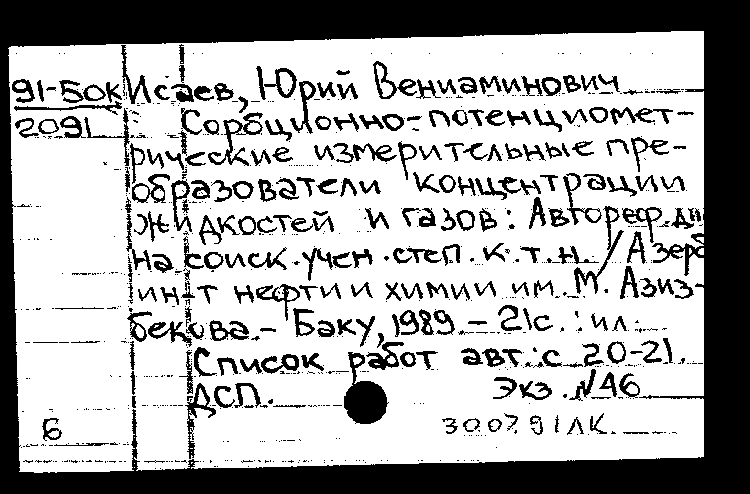 91-БОК Исаев, Юрий Вениаминович
2091 Сорбционно-потенциомет-
рические измерительные пре-
образователи концентрации
жидкостей и газов: Автореф. дис
на соиск. учен. степ. к. т. н. / Азерб
ин-т нефти и химии им. М. Азиз-
бекова. - Баку, 1989. - 21с. : ил.
Список работ авт.: с 20-21.
ДСП. Экз. №46
Б 30.07.91 ЛК.